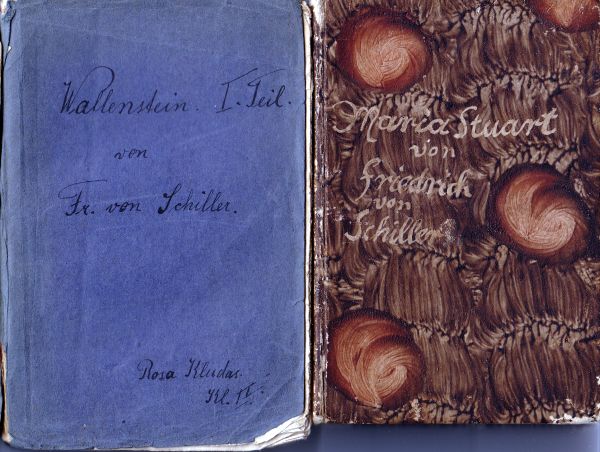 Wallenstein. I. Teil.
von
Fr. von Schiller.
Rosa Kludas.
Kl. II
Maria Stuart
von
Friedrich
von
Schiller